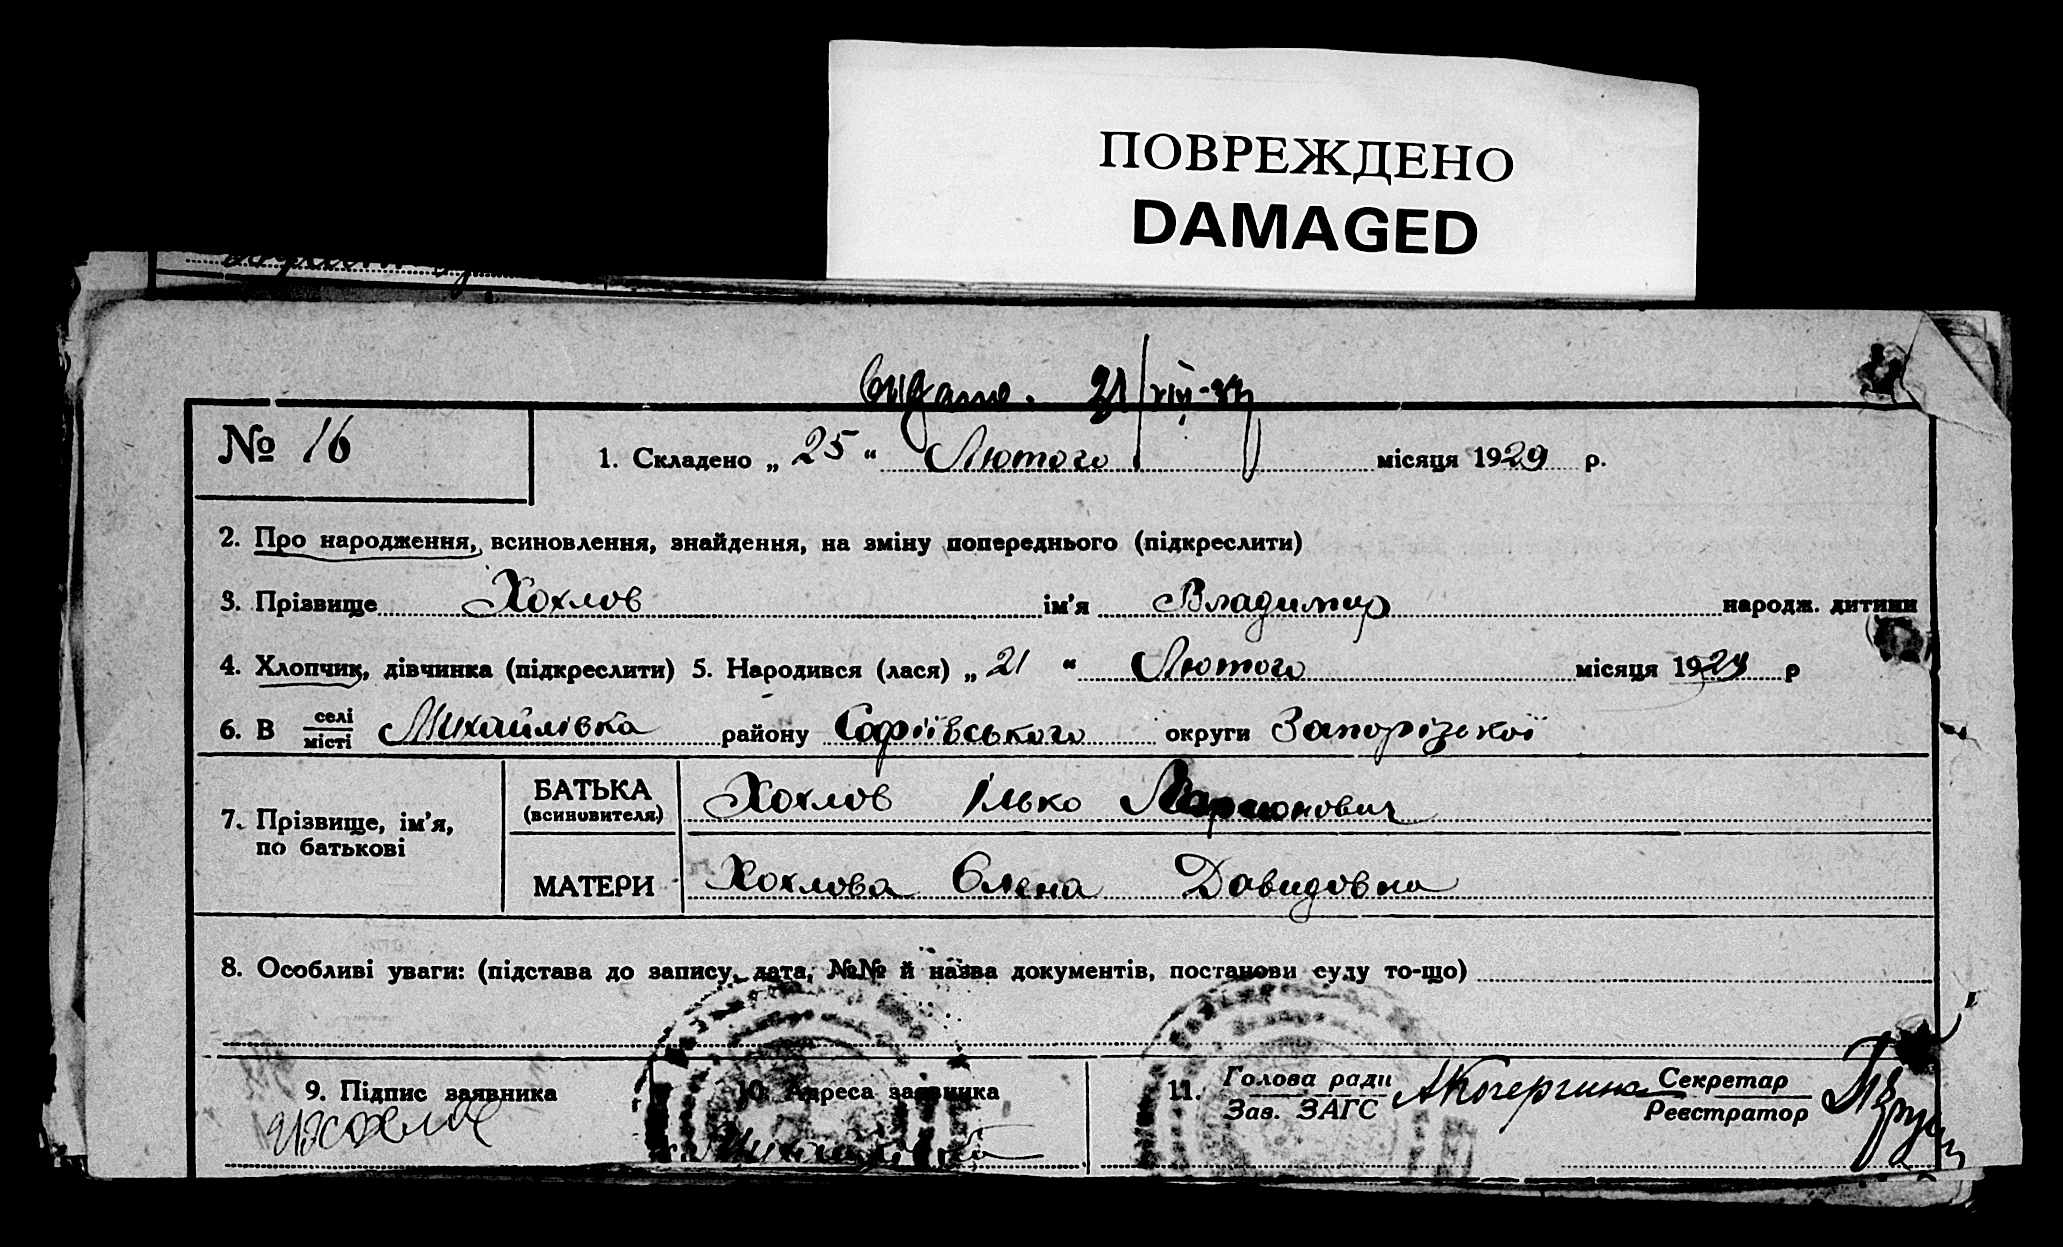 ПОВРЕЖДЕНО
DAMAGED
видано. 21/VIII-
№ 16
1. Складено „ 25 “ Лютого місяця 1929 р.
2. Про народження, всиновлення, знайдення, на зміну попереднього (підкреслити)
3. Прізвище Хохлов ім'я Владимир народж. дитини
4. Хлопчик, дівчинка (підкреслити) 5. Народився (лася) „ 21 “ Лютого місяця 1929 р
6. В селі місті Михайлівка району Софіївського округи Запорізької
7. Прізвище, ім'я, по батькові
БАТЬКА (всиновителя) Хохлов Ілько Ларионович
МАТЕРИ Хохлова Олена Давидовна
8. Особливі уваги: (підстава до запису, дата, №№ й назва документів, постанови суду то-що)
9. Підпис заявника
10. Адреса заявника
Михайлівка
11. Голова ради Зав. ЗАГС АКочергина Секретар Реєстратор